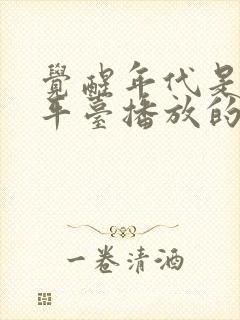 覺醒年代是
年臺播放的
一卷清酒